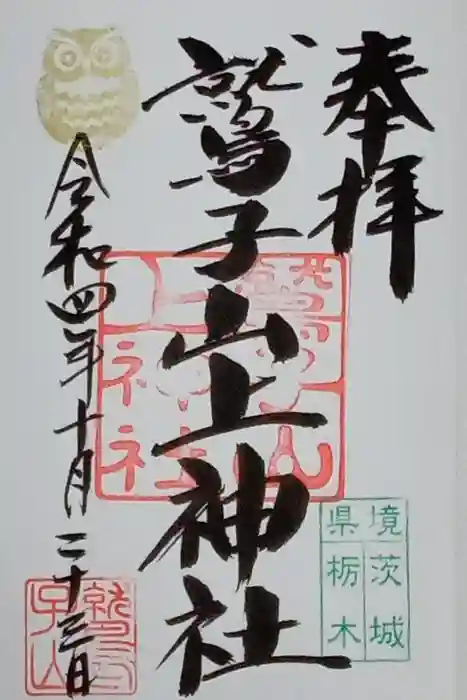 奉拝
鷲子山上神社
令和四年十月二十三日
鷲子山
上神社
境茨城
県栃木
鷲子山